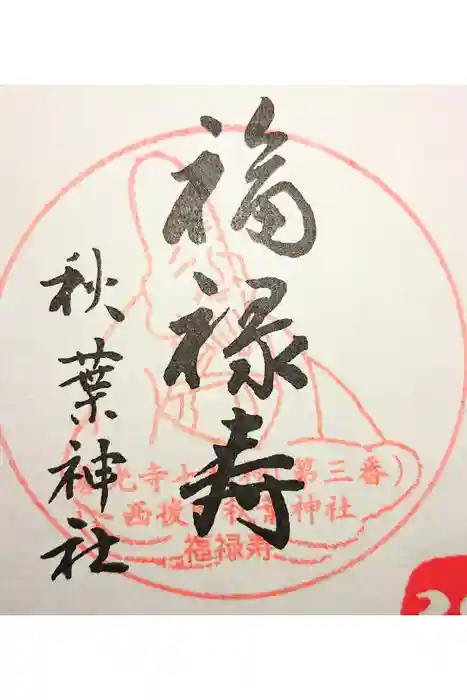 福禄寿
秋葉神社
寺七
第三番）
西
神社
福禄寿